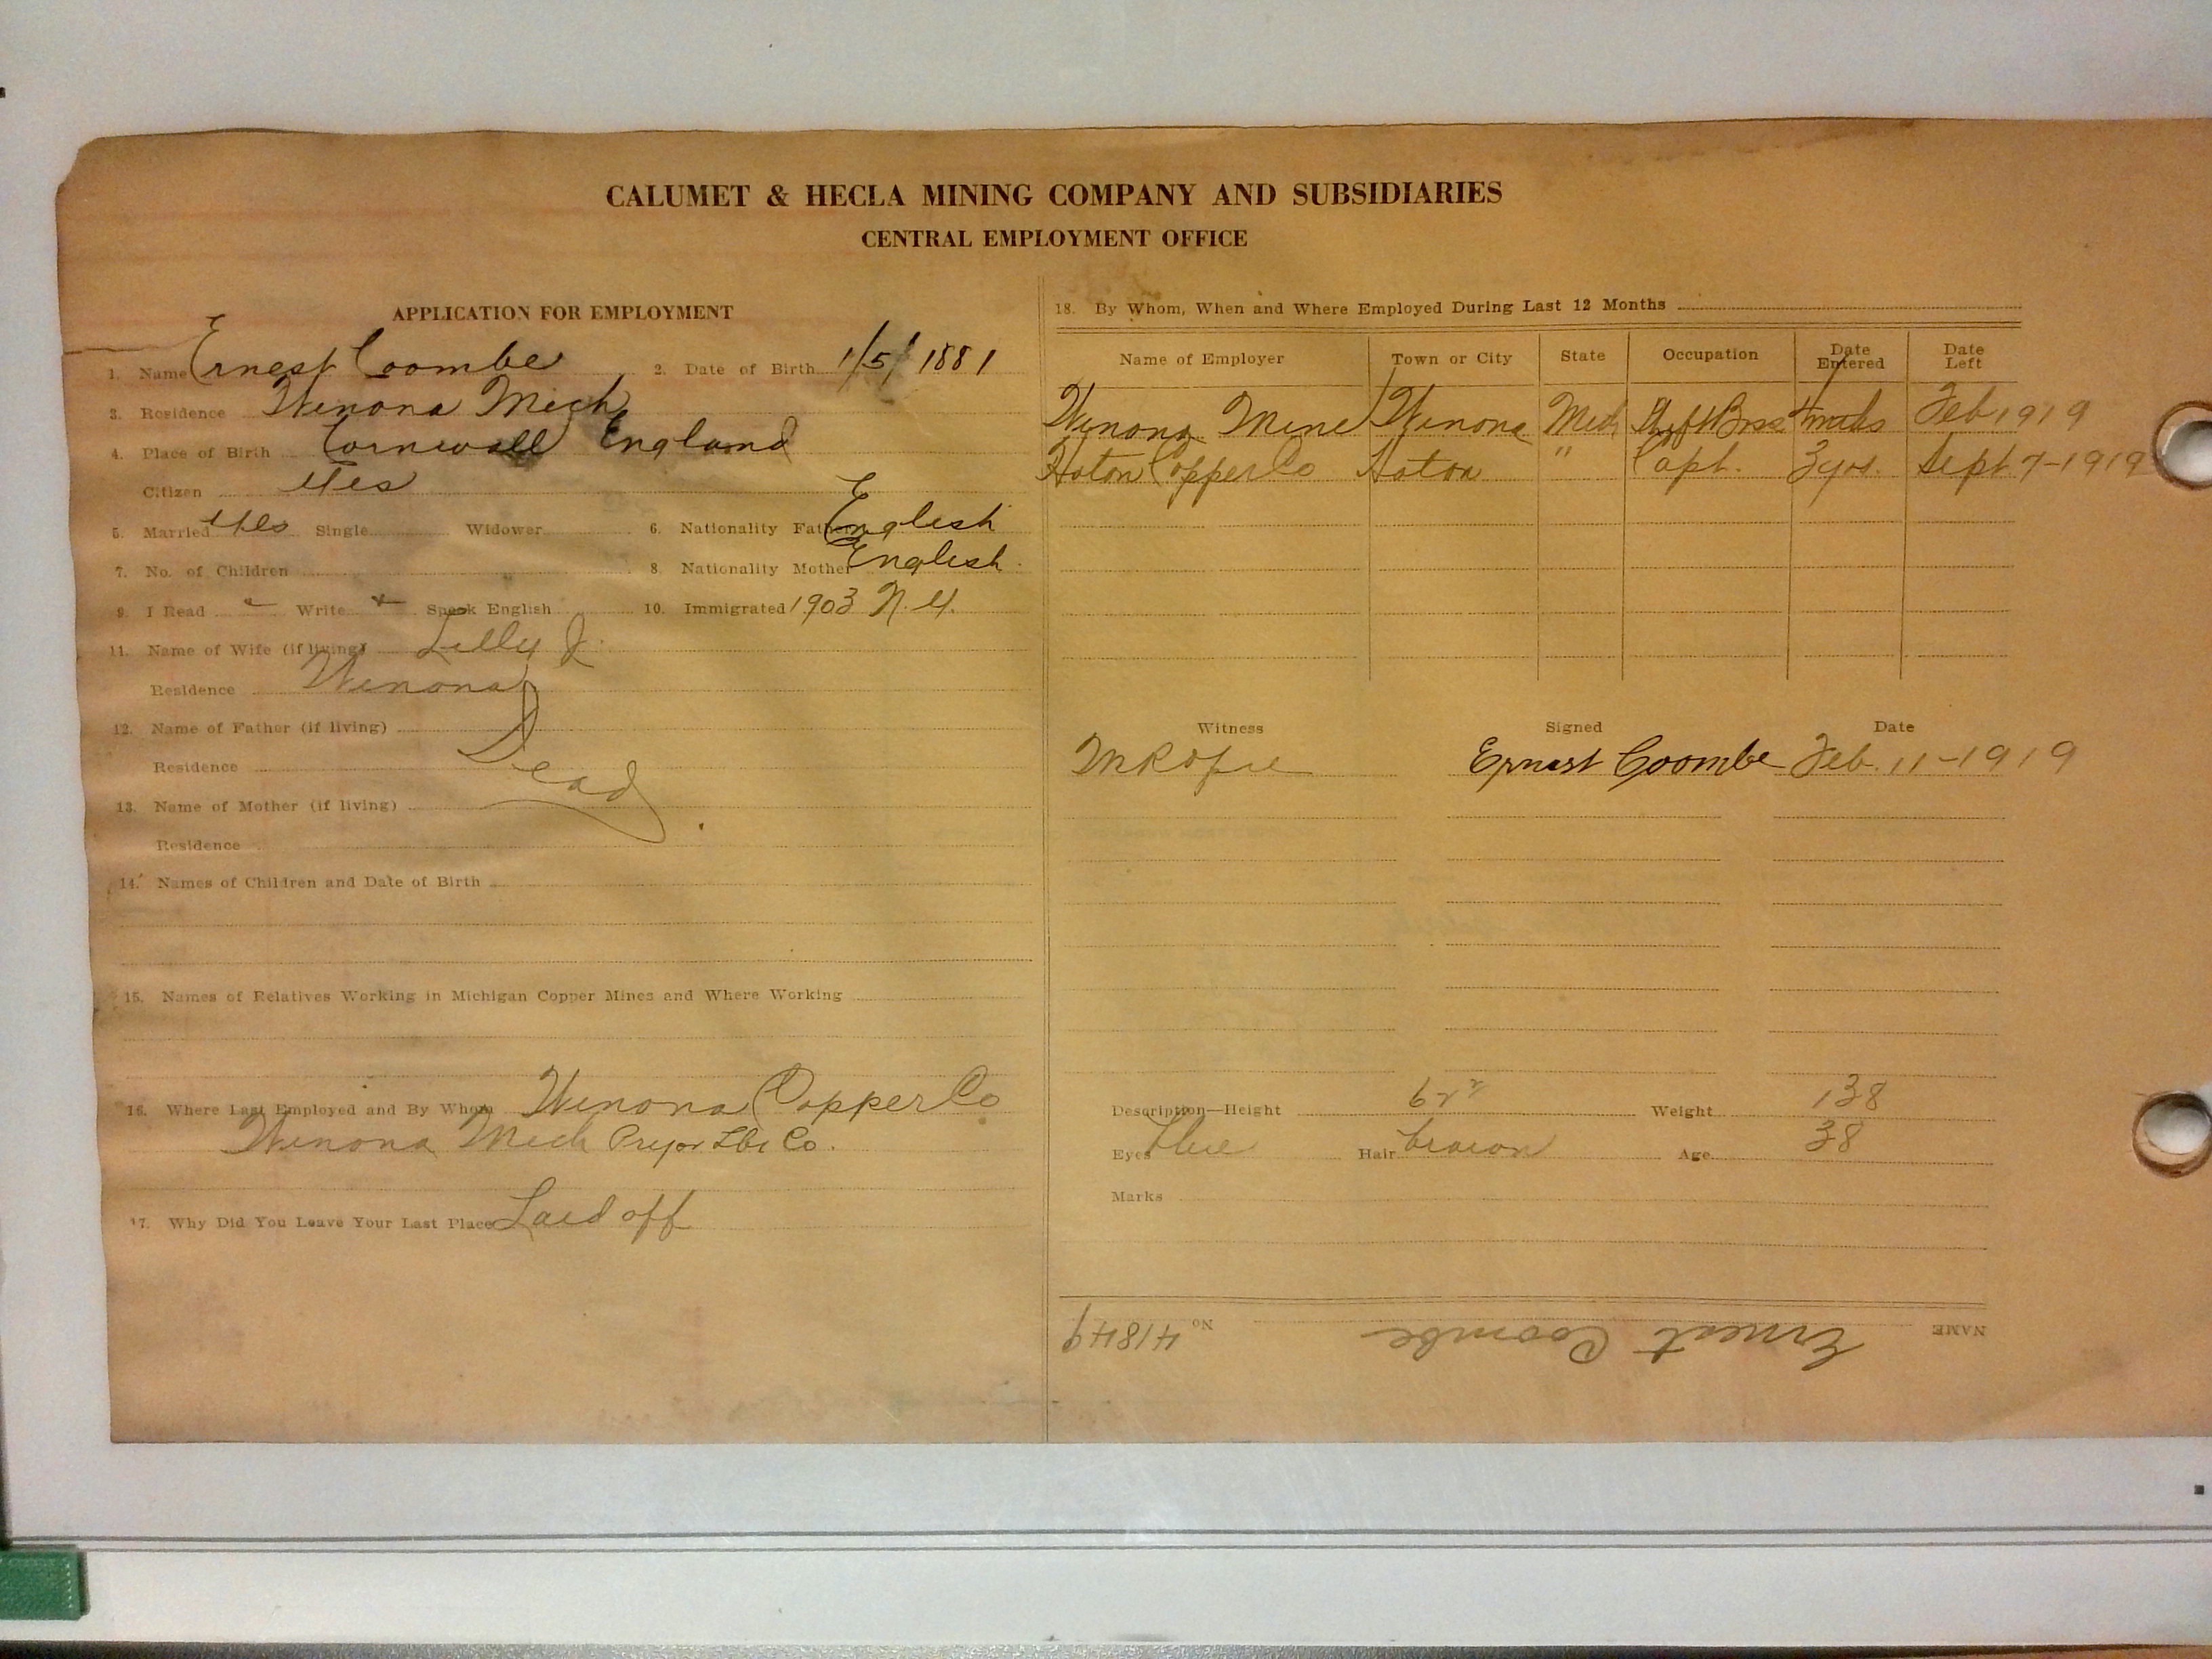 CALUMET & HECLA MINING COMPANY AND SUBSIDIARIES
CENTRAL EMPLOYMENT OFFICE
APPLICATION FOR EMPLOYMENT
1. Name Ernest Coombe 2. Date of Birth 1/5/1881
3. Residence Winona Mich
4. Place of Birth Cornwall England
Citizen Yes
5. Married Yes Single Widower 6. Nationality Father English
7. No. of Children 8. Nationality Mother English
9. I Read Write Speak English 10. Immigrated 1903 N.Y.
11. Name of Wife (if living) Lilly J.
Residence Winona
12. Name of Father (if living)
Residence Dead
13. Name of Mother (if living)
Residence
14. Names of Children and Date of Birth
15. Names of Relatives Working in Michigan Copper Mines and Where Working
16. Where Last Employed and By Whom Winona Copper Co
Winona Mich Lbr Co.
17. Why Did You Leave Your Last Place Laid off
18. By Whom, When and Where Employed During Last 12 Months
Name of Employer Town or City State Occupation Date Entered Date Left
Winona Mine Winona Mich Shift Boss Feb 1919
Copper Co " Capt. 3 yrs. Sept 7-1919
Witness Signed Date
Ernest Coombe Feb. 11-1919
Description—Height Weight 138
Eyes blue Hair brown Age 38
Marks
NAME Ernest Coombe No 41849